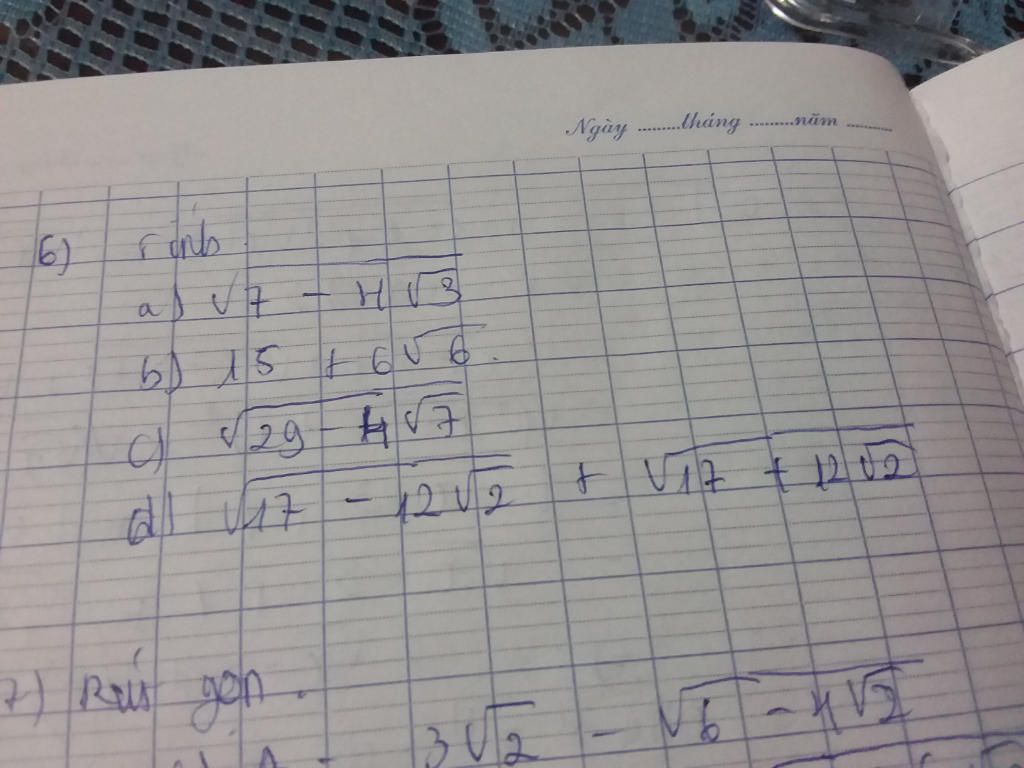 Ngày .........tháng .........năm .........
6) Tính
a) √7 - 4√3
b) 15 + 6√6.
c) √29 - 4√7
d) √17 - 12√2 + √17 + 12√2
7) Rút gọn.
3√2 - √6 - 4√2